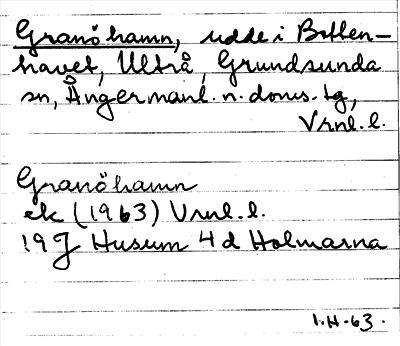 Granöhamn, udde i Botten-
havet, Ultrå, Grundsunda
sn, Ångermanl. n. doms. tg,
Vrnl. l.
Granöhamn
ek (1963) Vrnl. l.
19J Husum 4d Holmarna
1.H-63.